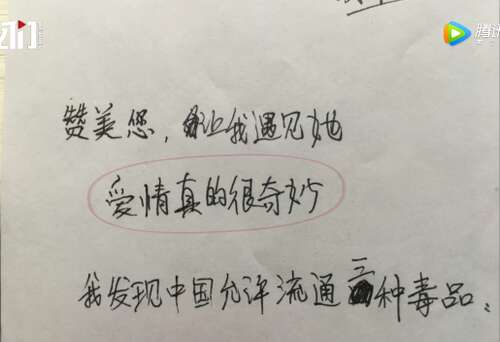 赞美您，让我遇见她
爱情真的很奇妙
我发现中国允许流通三种毒品、